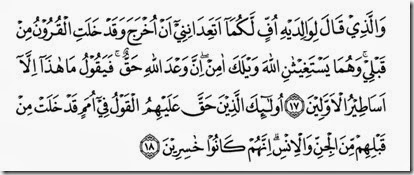 وَالَّذِيْ قَالَ لِوَالِدَيْهِ اُفٍّ لَّكُمَآ اَتَعِدَانِنِيْٓ اَنْ اُخْرَجَ وَقَدْ خَلَتِ الْقُرُوْنُ مِنْ
قَبْلِيْۚ وَهُمَا يَسْتَغِيْثٰنِ اللّٰهَ وَيْلَكَ اٰمِنْۖ اِنَّ وَعْدَ اللّٰهِ حَقٌّۚ فَيَقُوْلُ مَا هٰذَآ اِلَّآ
اَسَاطِيْرُ الْاَوَّلِيْنَ ١٧ اُولٰۤىِٕكَ الَّذِيْنَ حَقَّ عَلَيْهِمُ الْقَوْلُ فِيْٓ اُمَمٍ قَدْ خَلَتْ مِنْ
قَبْلِهِمْ مِّنَ الْجِنِّ وَالْاِنْسِۗ اِنَّهُمْ كَانُوْا خٰسِرِيْنَ ١٨